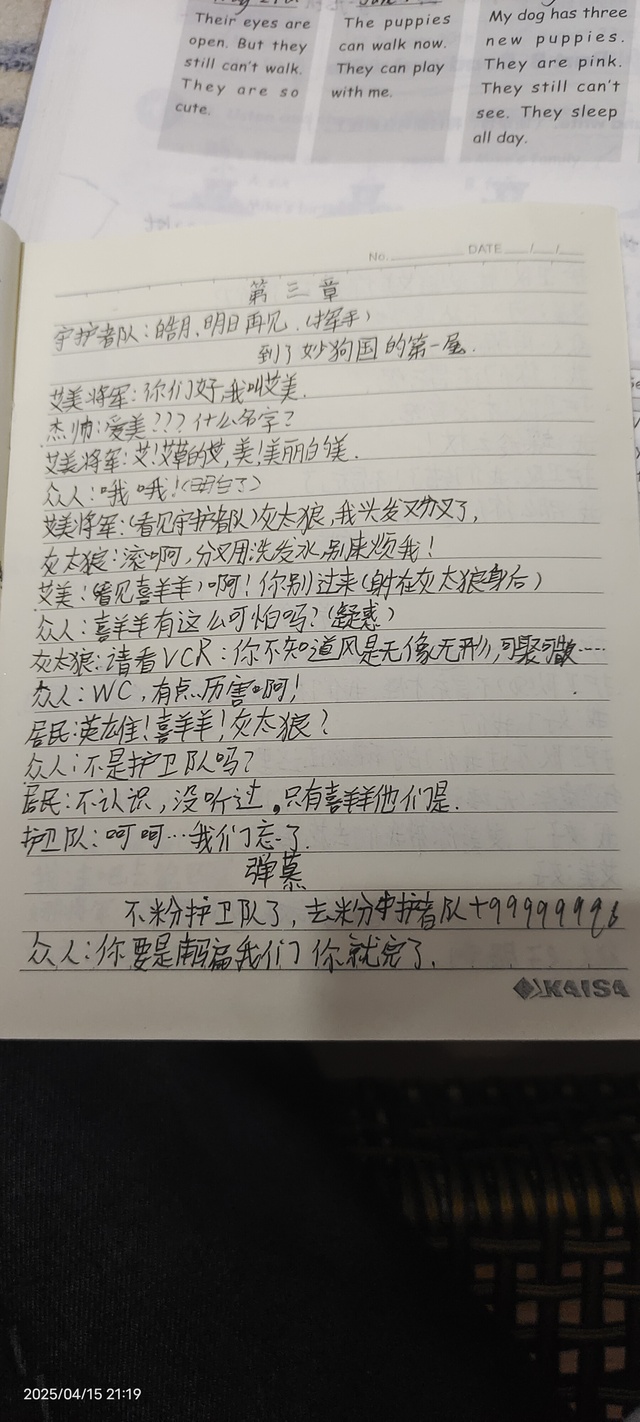 Their eyes are
open. But they
still can't walk.
They are so
cute.
The puppies
can walk now.
They can play
with me.
My dog has three
new puppies.
They are pink.
They still can't
see. They sleep
all day.
No. DATE / /
第三章
守护者队：皓月、明日再见.（挥手）
到了妙狗国的第一星.
艾美将军：你们好，我叫艾美.
杰帅：爱美？？？什么名字？
艾美将军：艾！艾草的艾，美！美丽的美.
众人：哦哦！（明白了）
艾美将军：（看见守护者队）灰太狼，我头发又分叉了，
灰太狼：滚啊，分叉用洗发水，别来烦我！
艾美：（看见喜羊羊）啊！你别过来（躲在灰太狼身后）
众人：喜羊羊有这么可怕吗？（疑惑）
灰太狼：请看VCR：你不知道风是无像无形，可聚可散……
众人：WC，有点厉害啊！
居民：英雄！喜羊羊！灰太狼？
众人：不是护卫队吗？
居民：不认识，没听过，只有喜羊羊他们是.
护卫队：呵呵…我们忘了.
弹幕
不粉护卫队了，去粉守护者队+99999996
众人：你要是敢骗我们你就完了.
KAISA
2025/04/15 21:19